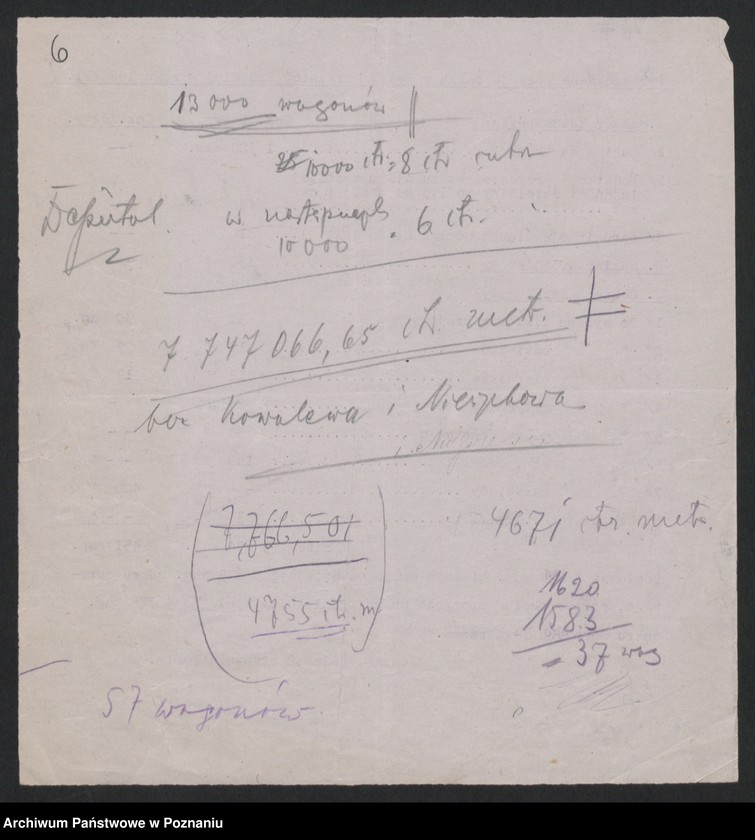 6
13 000 wagonów
10000 ctr. = 8 ctr
w następnych 6 ctr.
10 000
7 747 066,65 ctr. metr.
bez Kowalewa i
7,766,501
4671 ctr. metr.
4755 ctr. m.
1620
1583
= 37 wag
57 wagonów
Archiwum Państwowe w Poznaniu